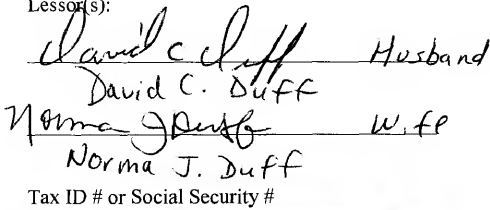 Lessor(s):
David C Duff Husband
David C. Duff
Norma J Duff Wife
Norma J. Duff
Tax ID # or Social Security #